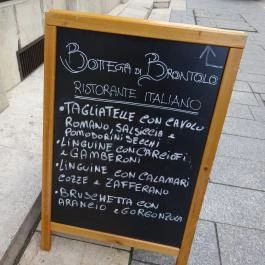 BOTTEGA DI BRONTOLO
RISTORANTE ITALIANO
• TAGLIATELLE CON CAVOLO
ROMANO, SALSICCIA e
POMODORINI SECCHI
• LINGUINE CON CARCIOFI
e GAMBERONI
• LINGUINE CON CALAMARI
COZZE e ZAFFERANO
• BRUSCHETTA CON
ARANCIO e GORGONZOLA